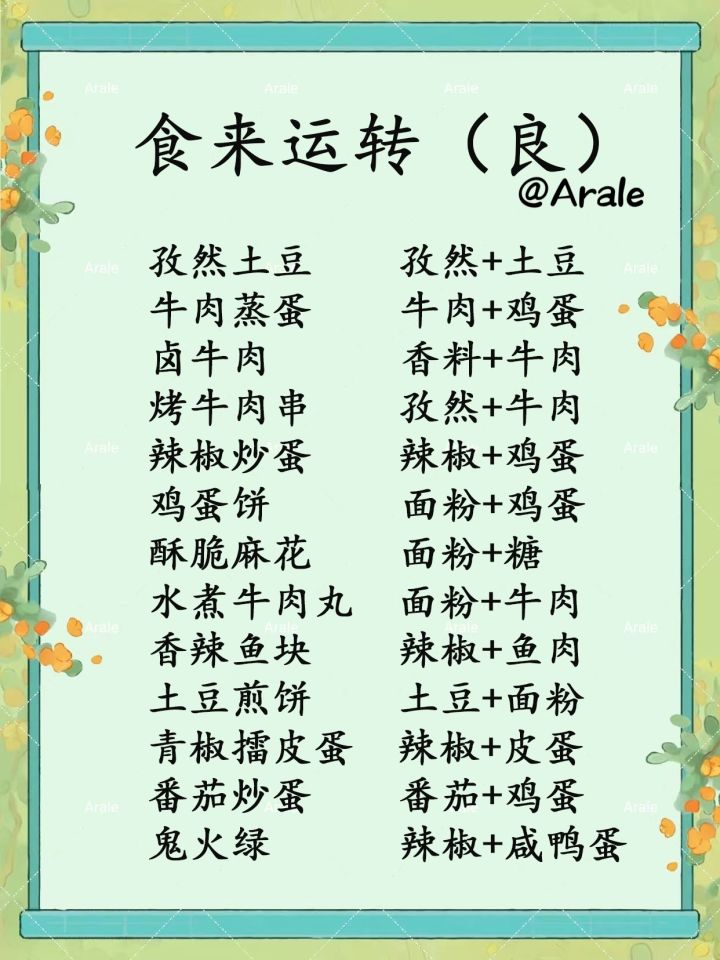 食来运转（良）
@Arale
孜然土豆 孜然+土豆
牛肉蒸蛋 牛肉+鸡蛋
卤牛肉 香料+牛肉
烤牛肉串 孜然+牛肉
辣椒炒蛋 辣椒+鸡蛋
鸡蛋饼 面粉+鸡蛋
酥脆麻花 面粉+糖
水煮牛肉丸 面粉+牛肉
香辣鱼块 辣椒+鱼肉
土豆煎饼 土豆+面粉
青椒擂皮蛋 辣椒+皮蛋
番茄炒蛋 番茄+鸡蛋
鬼火绿 辣椒+咸鸭蛋